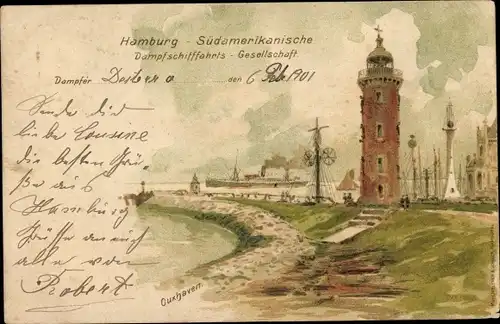 Hamburg - Südamerikanische
Dampfschifffahrts - Gesellschaft.
Dampfer Desterro den 6 Feb. 1901
Sende dir
liebe Cousine
die besten Grü-
ße aus
Hamburg
Grüße auch
alle von
Robert
Cuxhaven.